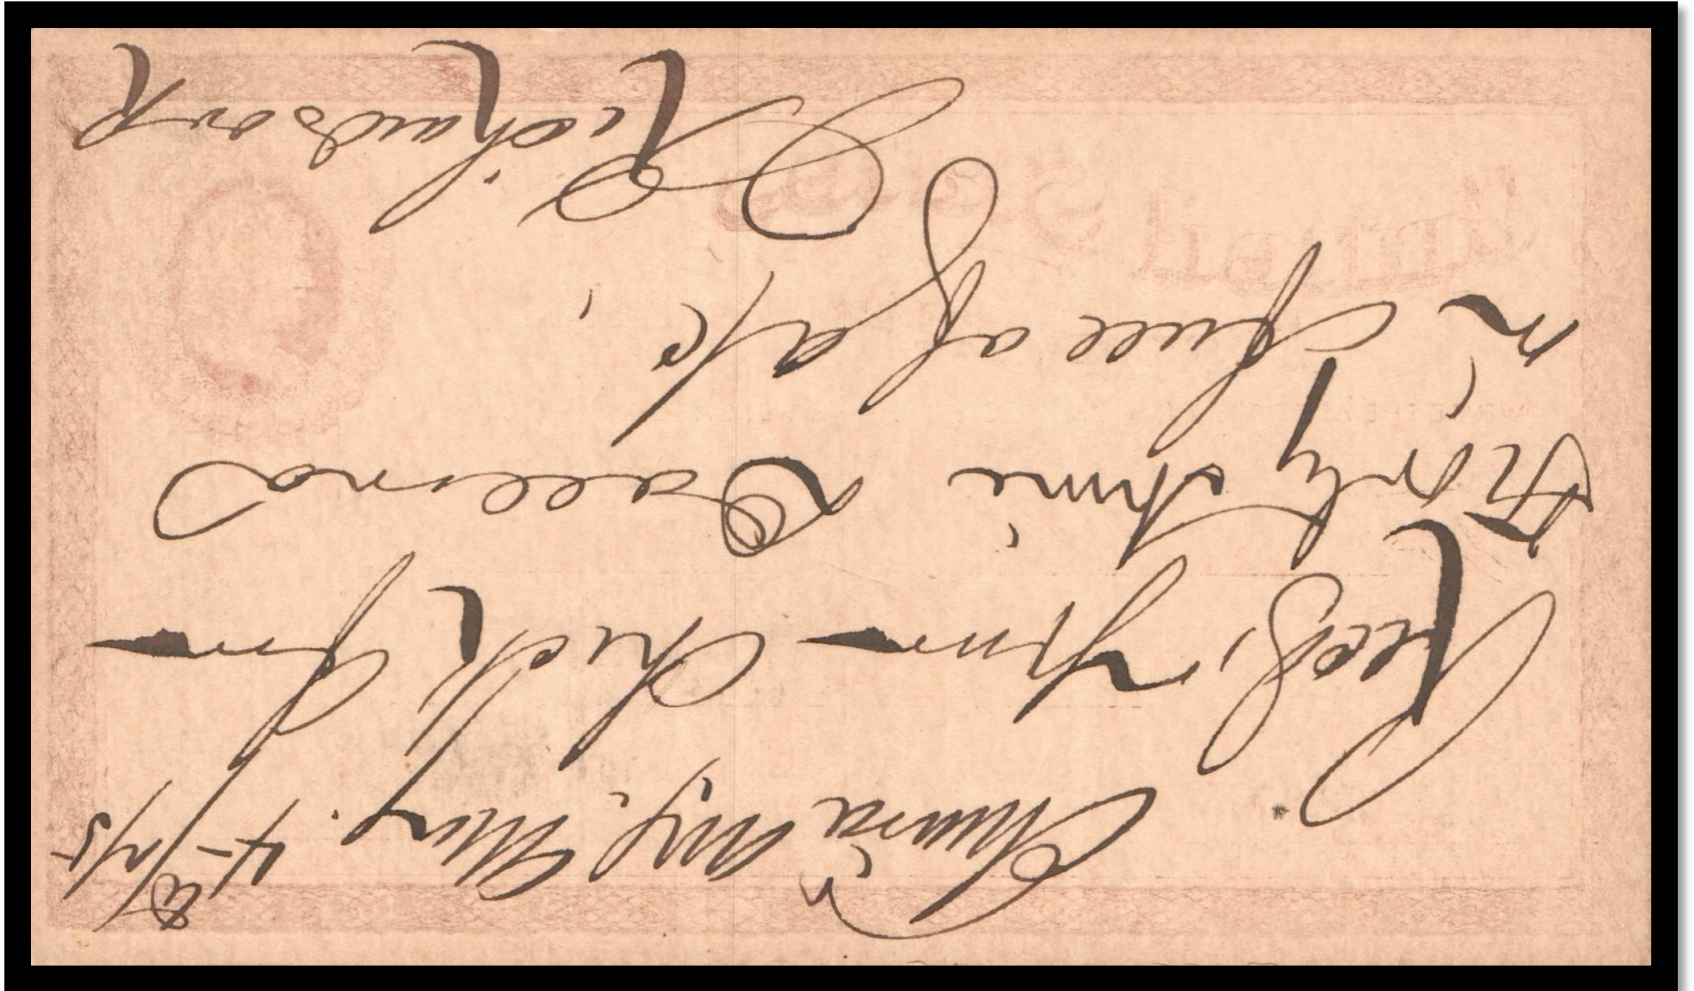 Elmira NY, May. 4 /75
Recd, Your — Check for —
Thirty three Dollars
in full of a/c,
Richardson